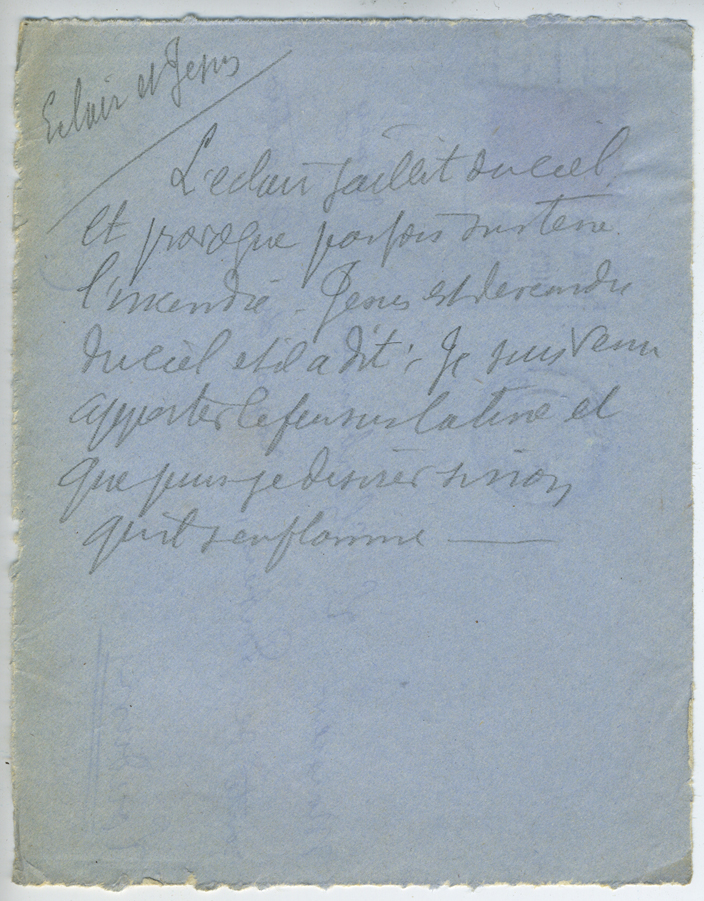 Eclair et Jesus
L'eclair jaillit du ciel
et provoque parfois sur terre
l'incendie - Jesus est descendu
du ciel et il a dit : Je suis venu
apporter le feu sur la terre et
que puis-je desirer sinon
qu'il s'enflamme